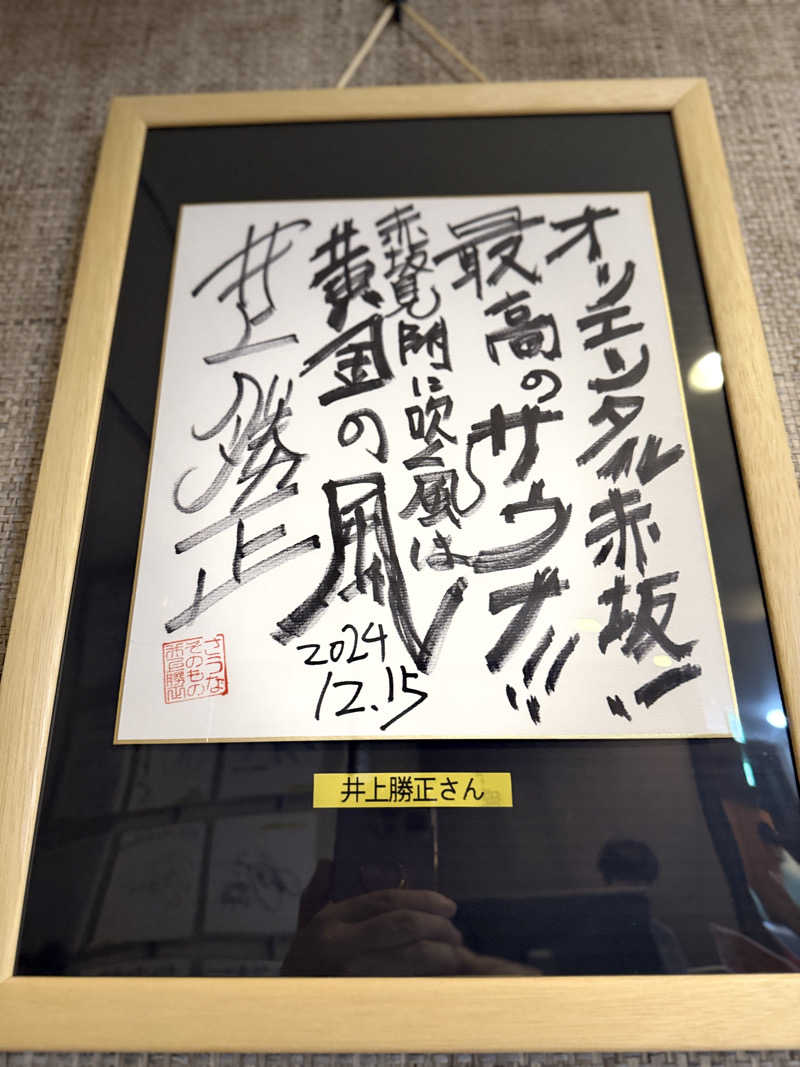 オリエンタル赤坂!!
最高のサウナ!!!
赤坂見附に吹く風は
黄金の風
井上勝正
2024
12.15
さうな
そのもの
井上勝正
井上勝正さん